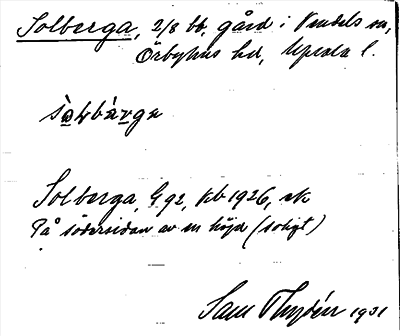 Solberga, 2/8 bb, gård i Vendels sn,
Örbyhus hd, Upsala l.
Solberga, G 92, kb 1926, ek
På södersidan av en höjd (soligt)
Sam Thydén 1931